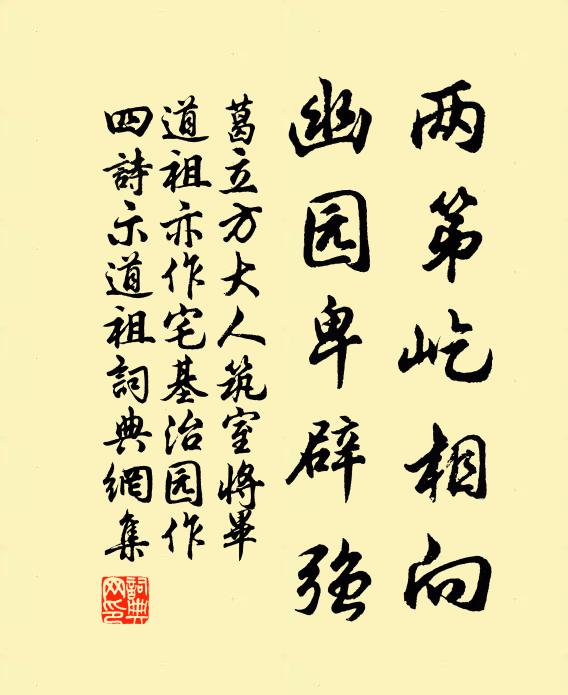 两第屹相向
幽园卑辟强
葛立方大人筑室将畢
道祖亦作宅基治园作
四詩示道祖詞典網集
詞典
网印